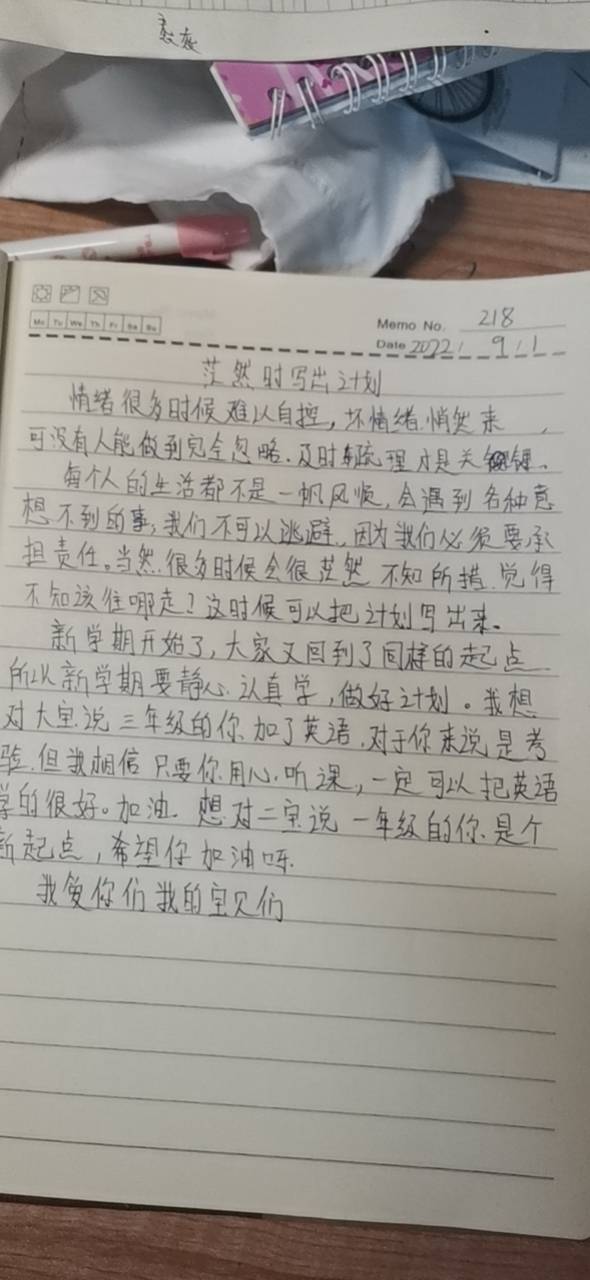 Mo Tu We Th Fr Sa Su
Memo No. 218
Date 2022 / 9 / 1
茫然时写出计划
情绪很多时候难以自控，坏情绪悄然来，
可没有人能做到完全忽略.及时梳理才是关键.
每个人的生活都不是一帆风顺,会遇到各种意
想不到的事,我们不可以逃避.因为我们必须要承
担责任。当然.很多时候会很茫然 不知所措.觉得
不知该往哪走？这时候可以把计划写出来。
新学期开始了,大家又回到了同样的起点.
所以新学期要静心.认真学,做好计划。我想
对大宝说 三年级的你.加了英语.对于你来说是考
验.但我相信 只要你用心.听课,一定可以把英语
学的很好。加油. 想对二宝说 一年级的你.是个
新起点,希望你加油呀.
我爱你们 我的宝贝们